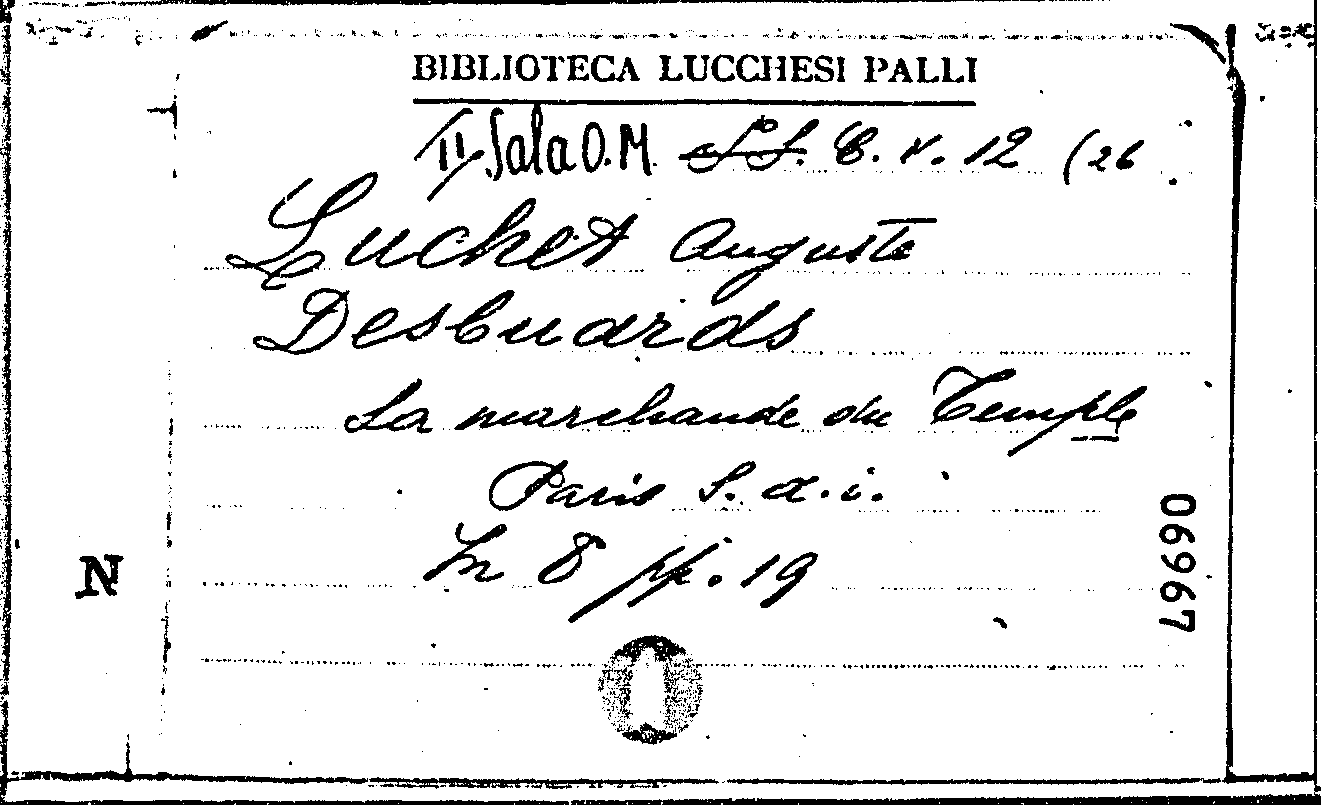 BIBLIOTECA LUCCHESI PALLI
II Sala O.M. S.S. C. V. 12 (26
Luchet Auguste
Desbuards
La marchande du Temple
Paris S. d. i.
In 8 pp. 19
N
06967